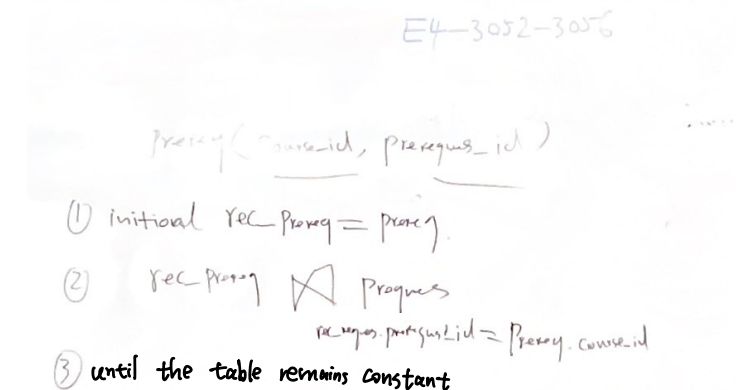 E4-3052-3056
Prereq(course_id, prerequs_id)
① initional rec_Prereq = prereq.
② rec_prereq ⋈
= Prereq.course_id
③ until the table remains constant